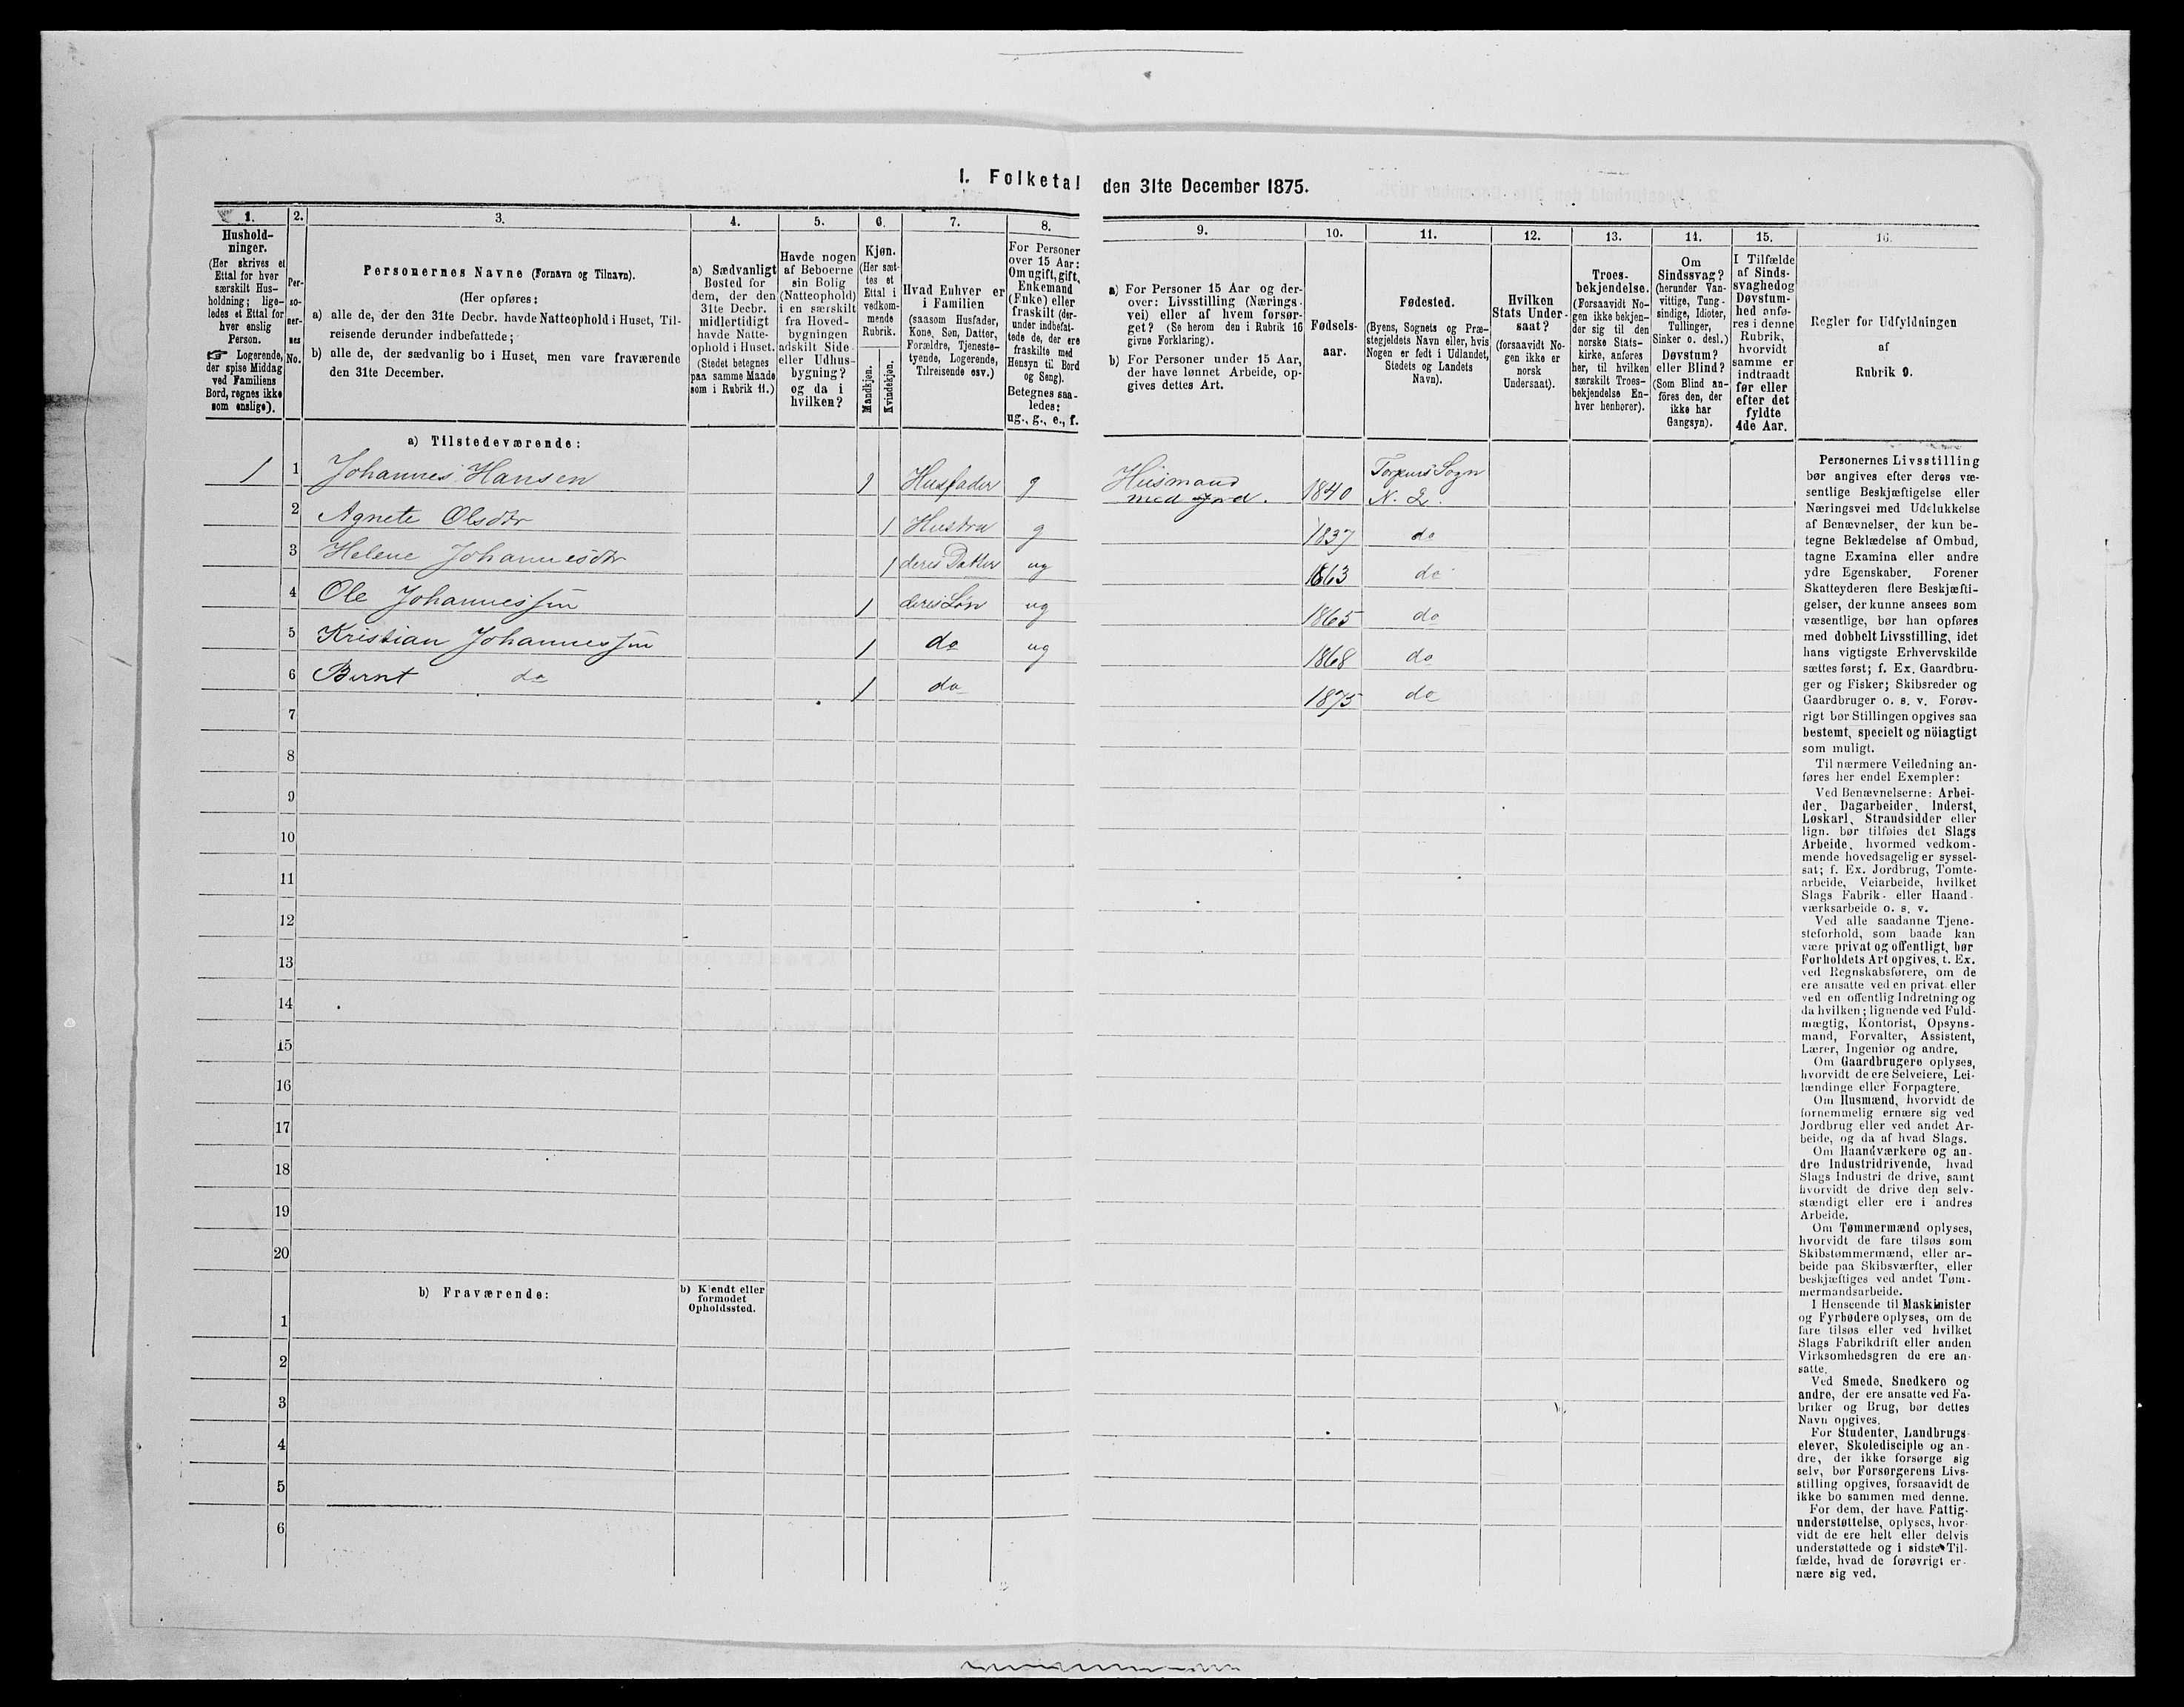 I. Folketal den 31te December 1875.
1.
Hushold-
ninger.
(Her skrives et
Ettal for hver
særskilt Hus-
holdning; lige-
ledes et Ettal for
hver enslig
Person.
☞ Logerende,
der spise Middag
ved Familiens
Bord, regnes ikke
som enslige).
2.
Per-
so-
ner-
nes
No.
3.
Personernes Navne (Fornavn og Tilnavn).
(Her opføres:
a) alle de, der den 31te Decbr. havde Natteophold i Huset, Til-
reisende derunder indbefattede;
b) alle de, der sædvanlig bo i Huset, men vare fraværende
den 31te December.
4.
a) Sædvanligt
Bosted for
dem, der den
31te Decbr.
midlertidigt
havde Natte-
ophold i Huset.
(Stedet betegnes
paa samme Maade
som i Rubrik 11.)
5.
Havde nogen
af Beboerne
sin Bolig
(Natteophold)
i en særskilt
fra Hoved-
bygningen
adskilt Side-
eller Udhus-
bygning?
og da i
hvilken?
6.
Kjøn.
(Her sæt-
tes et
Ettal i
vedkom-
mende
Rubrik.
Mandkjøn.
Kvindekjøn.
7.
Hvad Enhver er
i Familien
(saasom Husfader,
Kone, Søn, Datter,
Forældre, Tjeneste-
tyende, Logerende,
Tilreisende osv.)
8.
For Personer
over 15 Aar:
Om ugift, gift,
Enkemand
(Enke) eller
fraskilt (der-
under indbefat-
tede de, der ere
fraskilte med
Hensyn til Bord
og Seng).
Betegnes saa-
ledes:
ug., g., e., f.
9.
a) For Personer 15 Aar og der-
over: Livsstilling (Nærings-
vei) eller af hvem forsør-
get? (Se herom den i Rubrik 16
givne Forklaring).
b) For Personer under 15 Aar,
der have lønnet Arbeide, op-
gives dettes Art.
10.
Fødsels-
aar.
11.
Fødested.
(Byens, Sognets og Præ-
stegjeldets Navn eller, hvis
Nogen er født i Udlandet,
Stedets og Landets
Navn).
12.
Hvilken
Stats Under-
saat?
(forsaavidt No-
gen ikke er
norsk
Undersaat).
13.
Troes-
bekjendelse.
(Forsaavidt No-
gen ikke bekjen-
der sig til den
norske Stats-
kirke, anføres
her, til hvilken
særskilt Troes-
bekjendelse En-
hver henhører).
14.
Om
Sindssvag?
(herunder Van-
vittige, Tung-
sindige, Idioter,
Tullinger,
Sinker o. desl.)
Døvstum?
eller Blind?
(Som Blind an-
föres den, der
ikke har
Gangsyn).
15.
I Tilfælde
af Sinds-
svaghed og
Døvstum-
hed anfø-
res i denne
Rubrik,
hvorvidt
samme er
indtraadt
før eller
efter det
fyldte
4de Aar.
16.
Regler for Udfyldningen
af
Rubrik 9.
a) Tilstedeværende:
1 1 Johannes Hansen 1 Husfader g Husmand med Jord. 1840 Torpens Sogn N. L.
2 Agnete Olsdtr 1 Hustru g 1837 do
3 Helene Johannesdtr 1 deres Datter ug 1863 do
4 Ole Johannessen 1 deres Søn ug 1865 do
5 Kristian Johannessen 1 do ug 1868 do
6 Bernt do 1 do 1875 do
7
8
9
10
11
12
13
14
15
16
17
18
19
20
b) Fraværende:
b) Kjendt eller
formodet
Opholdssted.
1
2
3
4
5
6
Personernes Livsstilling
bør angives efter deres væ-
sentlige Beskjæftigelse eller
Næringsvei med Udelukkelse
af Benævnelser, der kun be-
tegne Beklædelse af Ombud,
tagne Examina eller andre
ydre Egenskaber. Forener
Skatteyderen flere Beskjæfti-
gelser, der kunne ansees som
væsentlige, bør han opføres
med dobbelt Livsstilling, idet
hans vigtigste Erhvervskilde
sættes først; f. Ex. Gaardbru-
ger og Fisker; Skibsreder og
Gaardbruger o. s. v. Forøv-
rigt bør Stillingen opgives saa
bestemt, specielt og nöiagtigt
som muligt.
Til nærmere Veiledning an-
føres her endel Exempler:
Ved Benævnelserne: Arbei-
der, Dagarbeider, Inderst,
Løskarl, Strandsidder eller
lign. bør tilføies det Slags
Arbeide, hvormed vedkom-
mende hovedsagelig er syssel-
sat; f. Ex. Jordbrug, Tomte-
arbeide, Veiarbeide, hvilket
Slags Fabrik- eller Haand-
værksarbeide o. s. v.
Ved alle saadanne Tjene-
steforhold, som baade kan
være privat og offentligt, bør
Forholdets Art opgives, t. Ex.
ved Regnskabsførere, om de
ere ansatte ved en privat eller
ved en offentlig Indretning og
da hvilken; lignende ved Fuld-
mægtig, Kontorist, Opsyns-
mand, Forvalter, Assistent,
Lærer, Ingeniør og andre.
Om Gaardbrugere oplyses,
hvorvidt de ere Selveiere, Lei-
lændinge eller Forpagtere.
Om Husmænd, hvorvidt de
fornemmelig ernære sig ved
Jordbrug eller ved andet Ar-
beide, og da af hvad Slags.
Om Haandværkere og an-
dre Industridrivende, hvad
Slags Industri de drive, samt
hvorvidt de drive den selv-
stændigt eller ere i andres
Arbeide.
Om Tømmermænd oplyses,
hvorvidt de fare tilsøs som
Skibstømmermænd, eller ar-
beide paa Skibsværfter, eller
beskjæftiges ved andet Tøm-
mermandsarbeide.
I Henseende til Maskinister
og Fyrbødere oplyses, om de
fare tilsøs eller ved hvilket
Slags Fabrikdrift eller anden
Virksomhedsgren de ere an-
satte.
Ved Smede, Snedkere og
andre, der ere ansatte ved Fa-
briker og Brug, bør dettes
Navn opgives.
For Studenter, Landbrugs-
elever, Skoledisciple og an-
dre, der ikke forsørge sig
selv, bør Forsørgerens Livs-
stilling opgives, forsaavidt de
ikke bo sammen med denne.
For dem, der have Fattig-
understøttelse, oplyses, hvor-
vidt de ere helt eller delvis
understøttede og i sidste Til-
fælde, hvad de forøvrigt er-
nære sig ved.